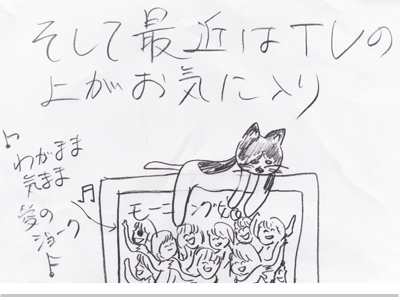 そして最近はTVの
上がお気に入り
♪わがまま
気まま
愛の
ジョーク♪
モーニング娘